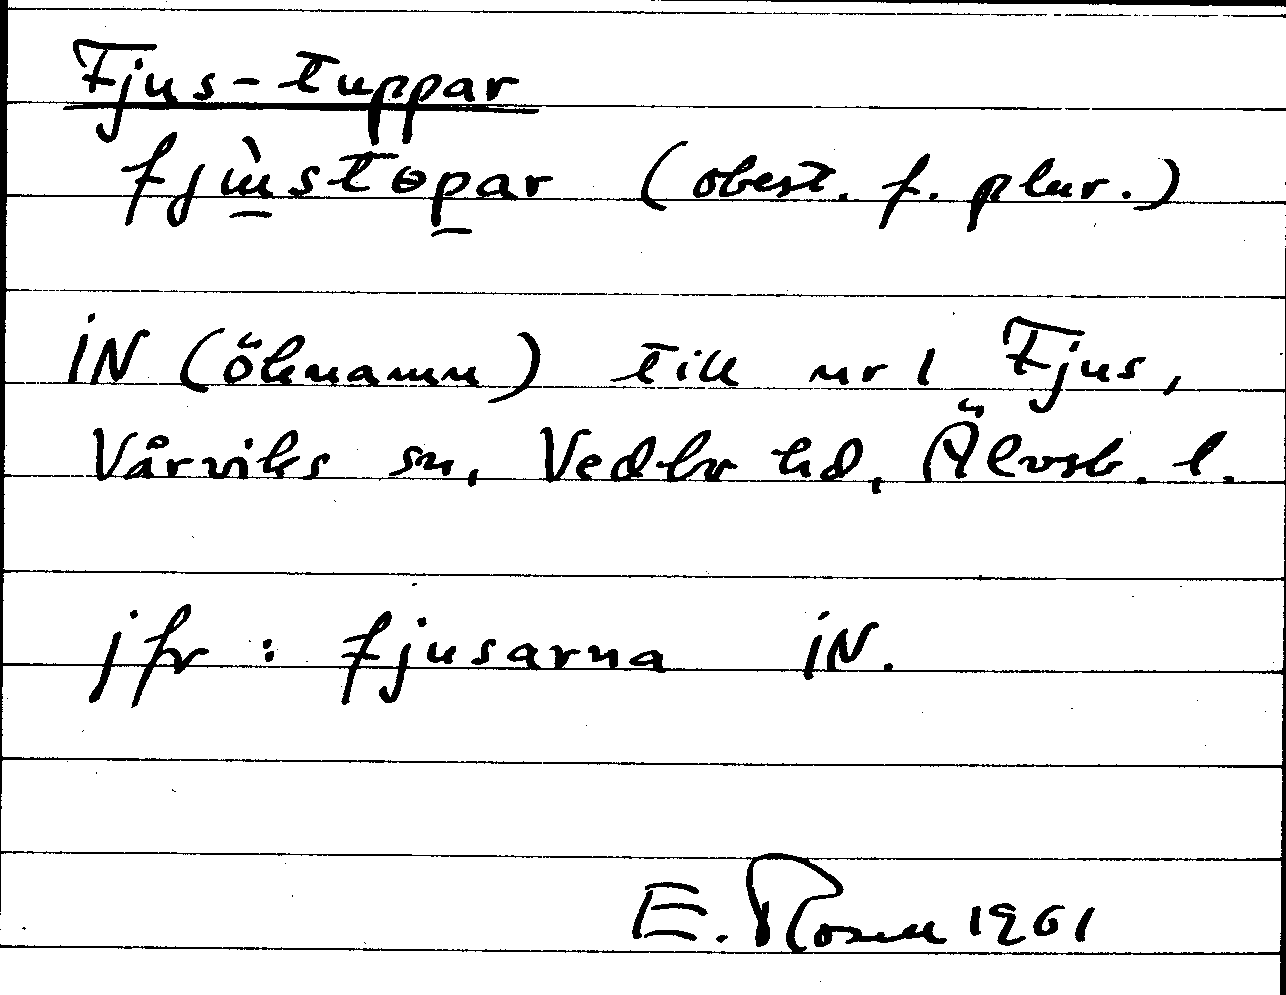 Fjus-tuppar
fjùstɵpar (obest. f. plur.)
iN (öknamn) till nr 1 Fjus,
Vårviks sn, Vedbo hd, Älvsb. l.
jfr : fjusarna iN.
E. Rosen 1961